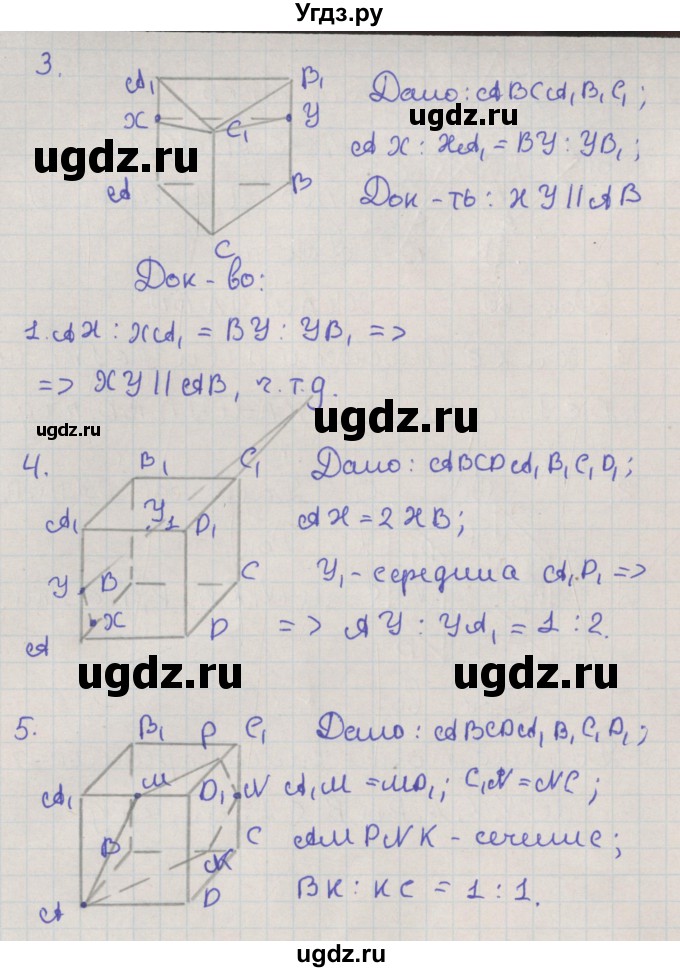 Угдз.ру
3.
A₁ B₁
X C₁ Y
A B
C
Дано: ABCA₁B₁C₁;
AX : XA₁ = BY : YB₁;
Док-ть: XY || AB
ugdz.ru
ugdz.ru
Док-во:
1. AX : XA₁ = BY : YB₁ =>
=> XY || AB, ч.т.д.
ugdz.ru
ugdz.ru
4.
B₁ C₁
A₁ Y₁ D₁
Y B C
X
A D
Дано: ABCDA₁B₁C₁D₁;
AX = 2XB;
Y₁ - середина A₁D₁ =>
=> AY : YA₁ = 1 : 2.
ugdz.ru
ugdz.ru
5.
B₁ P C₁
A₁ M D₁ N
B K C
A D
Дано: ABCDA₁B₁C₁D₁;
A₁M = MD₁; C₁N = NC;
AMPNK - сечение;
BK : KC = 1 : 1.
ugdz.ru
ugdz.ru
ugdz.ru